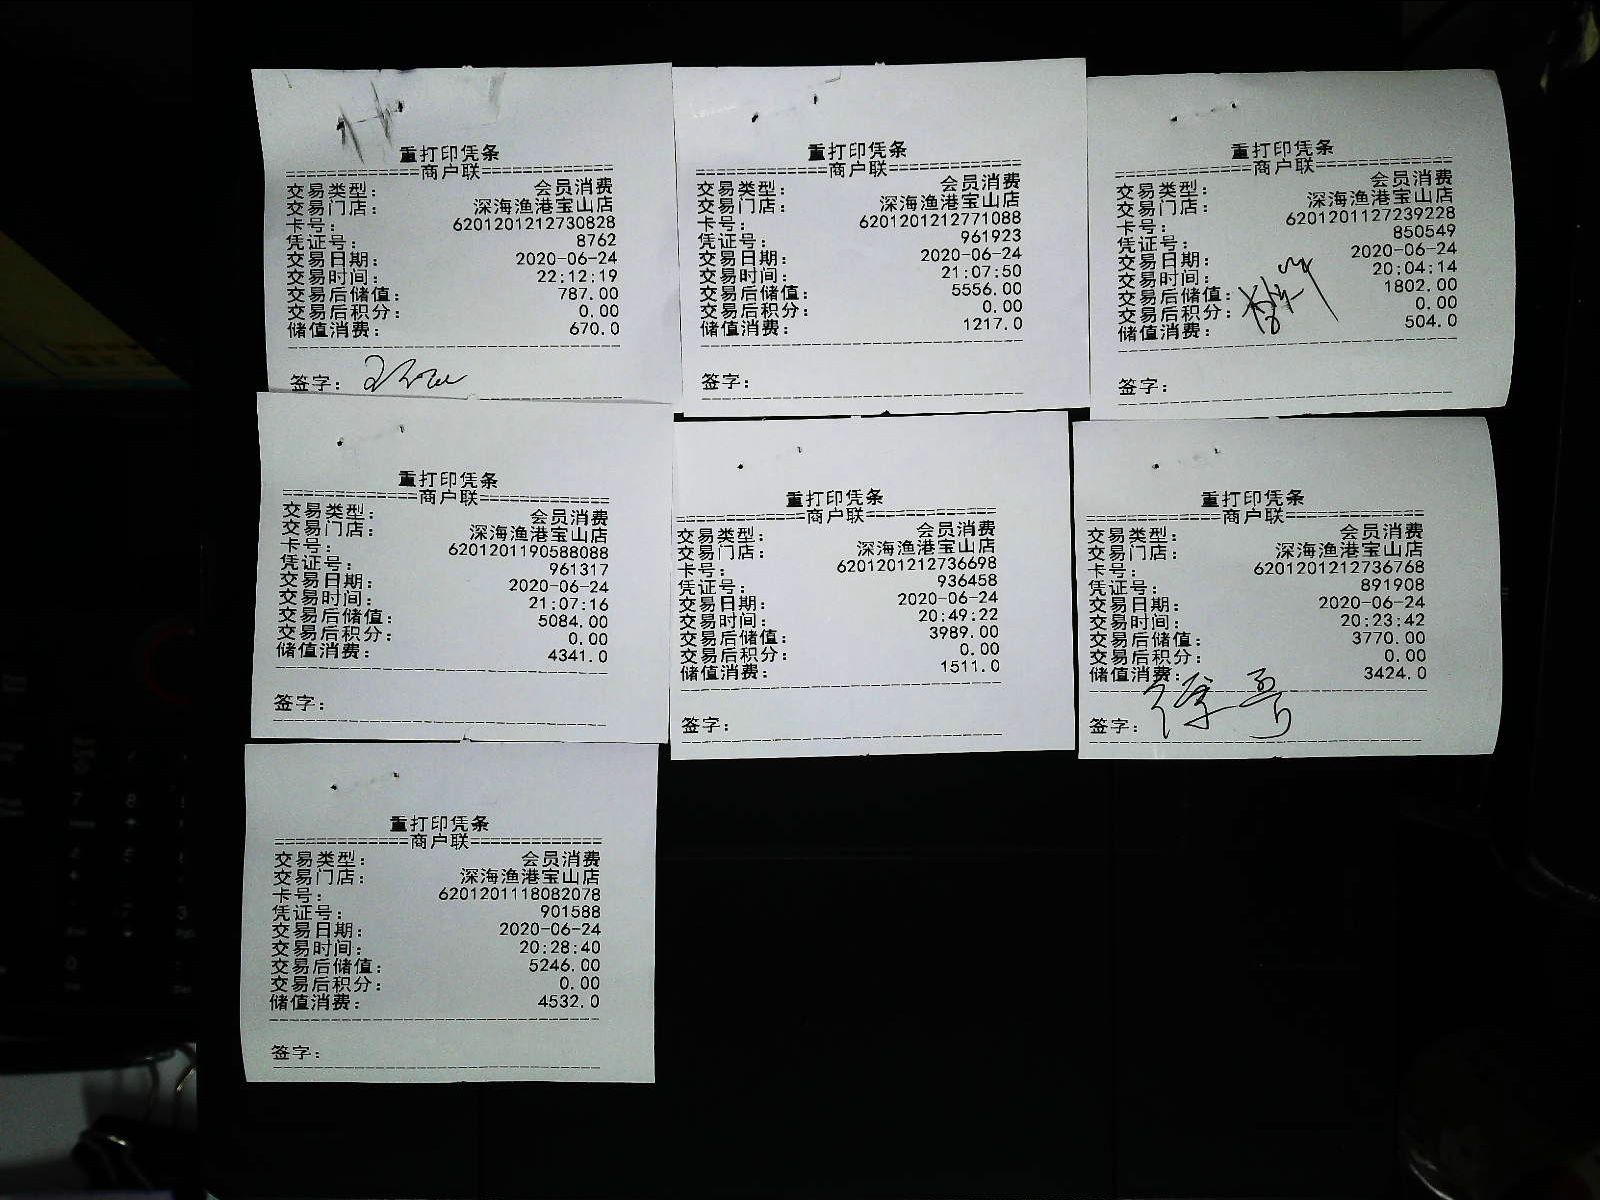 重打印凭条
==============商户联==============
交易类型: 会员消费
交易门店: 深海渔港宝山店
卡号: 6201201212730828
凭证号: 8762
交易日期: 2020-06-24
交易时间: 22:12:19
交易后储值: 787.00
交易后积分: 0.00
储值消费: 670.0
签字:
重打印凭条
==============商户联==============
交易类型: 会员消费
交易门店: 深海渔港宝山店
卡号: 6201201212771088
凭证号: 961923
交易日期: 2020-06-24
交易时间: 21:07:50
交易后储值: 5556.00
交易后积分: 0.00
储值消费: 1217.0
签字:
重打印凭条
==============商户联==============
交易类型: 会员消费
交易门店: 深海渔港宝山店
卡号: 6201201127239228
凭证号: 850549
交易日期: 2020-06-24
交易时间: 20:04:14
交易后储值: 1802.00
交易后积分: 0.00
储值消费: 504.0
签字:
重打印凭条
==============商户联==============
交易类型: 会员消费
交易门店: 深海渔港宝山店
卡号: 6201201190588088
凭证号: 961317
交易日期: 2020-06-24
交易时间: 21:07:16
交易后储值: 5084.00
交易后积分: 0.00
储值消费: 4341.0
签字:
重打印凭条
==============商户联==============
交易类型: 会员消费
交易门店: 深海渔港宝山店
卡号: 6201201212736698
凭证号: 936458
交易日期: 2020-06-24
交易时间: 20:49:22
交易后储值: 3989.00
交易后积分: 0.00
储值消费: 1511.0
签字:
重打印凭条
==============商户联==============
交易类型: 会员消费
交易门店: 深海渔港宝山店
卡号: 6201201212736768
凭证号: 891908
交易日期: 2020-06-24
交易时间: 20:23:42
交易后储值: 3770.00
交易后积分: 0.00
储值消费: 3424.0
签字:
重打印凭条
==============商户联==============
交易类型: 会员消费
交易门店: 深海渔港宝山店
卡号: 6201201118082078
凭证号: 901588
交易日期: 2020-06-24
交易时间: 20:28:40
交易后储值: 5246.00
交易后积分: 0.00
储值消费: 4532.0
签字: